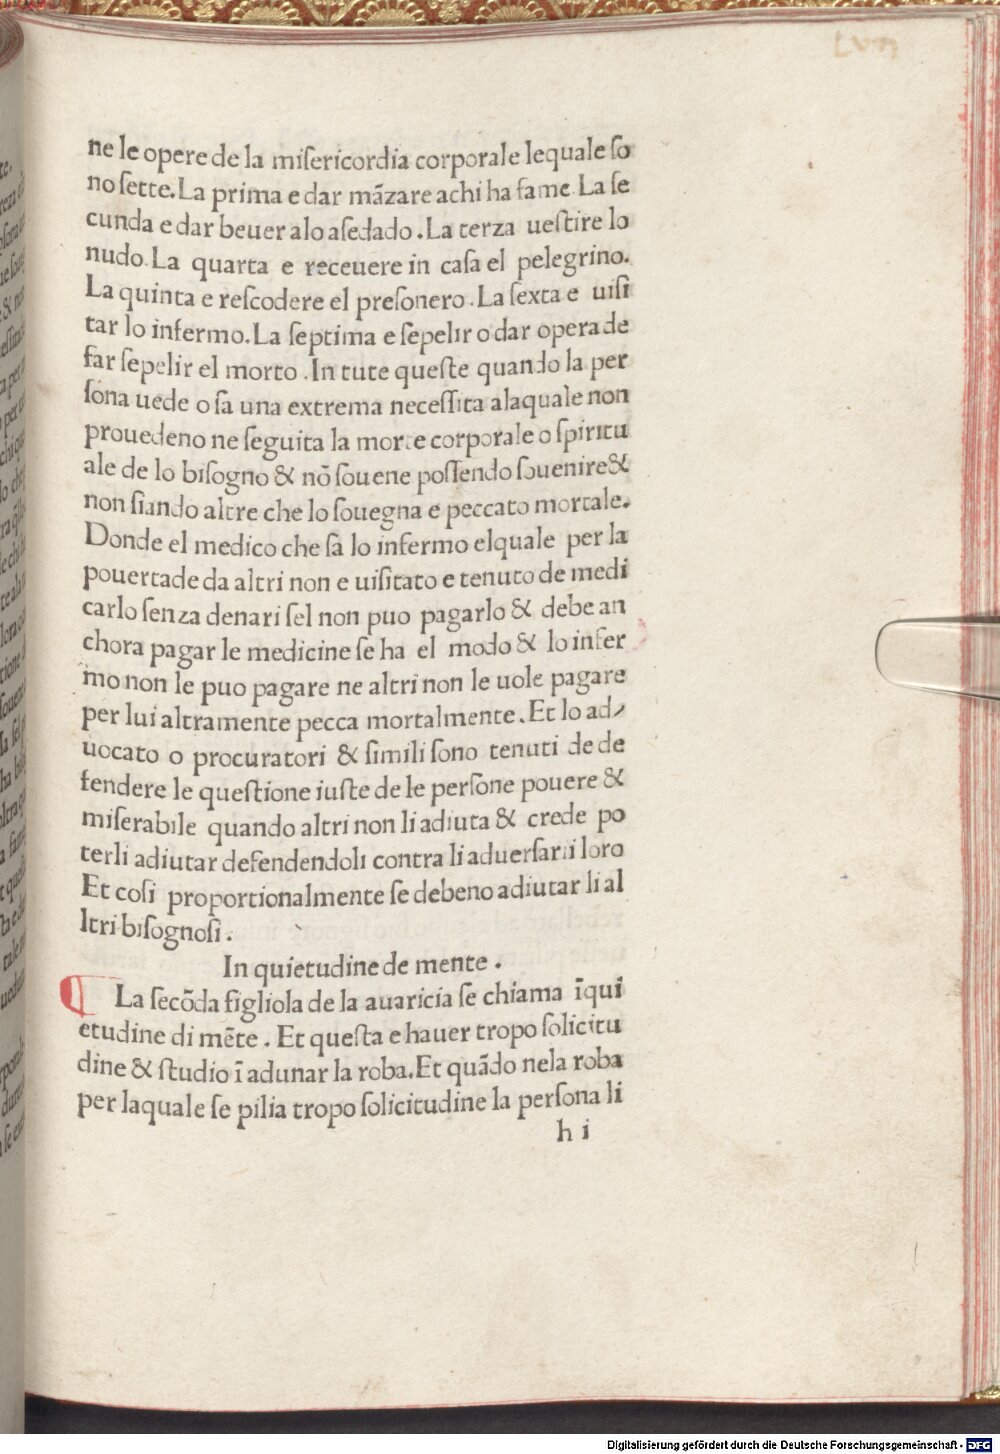 LVII
ne le opere de la miſericordia corporale lequale ſo
no ſette. La prima e dar mãzare achi ha fame La ſe
cunda e dar beuer alo aſedado. La terza ueſtire lo
nudo. La quarta e receuere in caſa el pelegrino.
La quinta e reſcodere el preſonero. La ſexta e uiſi
tar lo infermo. La ſeptima e ſepelir o dar opera de
far ſepelir el morto. In tute queſte quando la per
ſona uede o ſa una extrema neceſſita alaquale non
prouedeno ne ſeguita la morte corporale o ſpiritu
ale de lo biſogno & nõ ſouene poſſendo ſouenire &
non ſiando altre che lo ſouegna e peccato mortale.
Donde el medico che ſa lo infermo elquale per la
pouertade da altri non e uiſitato e tenuto de medi
carlo ſenza denari ſel non puo pagarlo & debe an
chora pagar le medicine ſe ha el modo & lo infer
mo non le puo pagare ne altri non le uole pagare
per lui altramente pecca mortalmente. Et lo ad⸗
uocato o procuratori & ſimili ſono tenuti de de
fendere le queſtione iuſte de le perſone pouere &
miſerabile quando altri non li adiuta & crede po
terli adiutar defendendoli contra li aduerſarii loro
Et coſi proportionalmente ſe debeno adiutar li al
ltri biſognoſi.
In quietudine de mente.
La ſecõda figliola de la auaricia ſe chiama ĩqui
etudine di mẽte. Et queſta e hauer tropo ſolicitu
dine & ſtudio ĩ adunar la roba. Et quãdo nela roba
per laquale ſe pilia tropo ſolicitudine la perſona li
h i
Digitalisierung gefördert durch die Deutsche Forschungsgemeinschaft - DFG